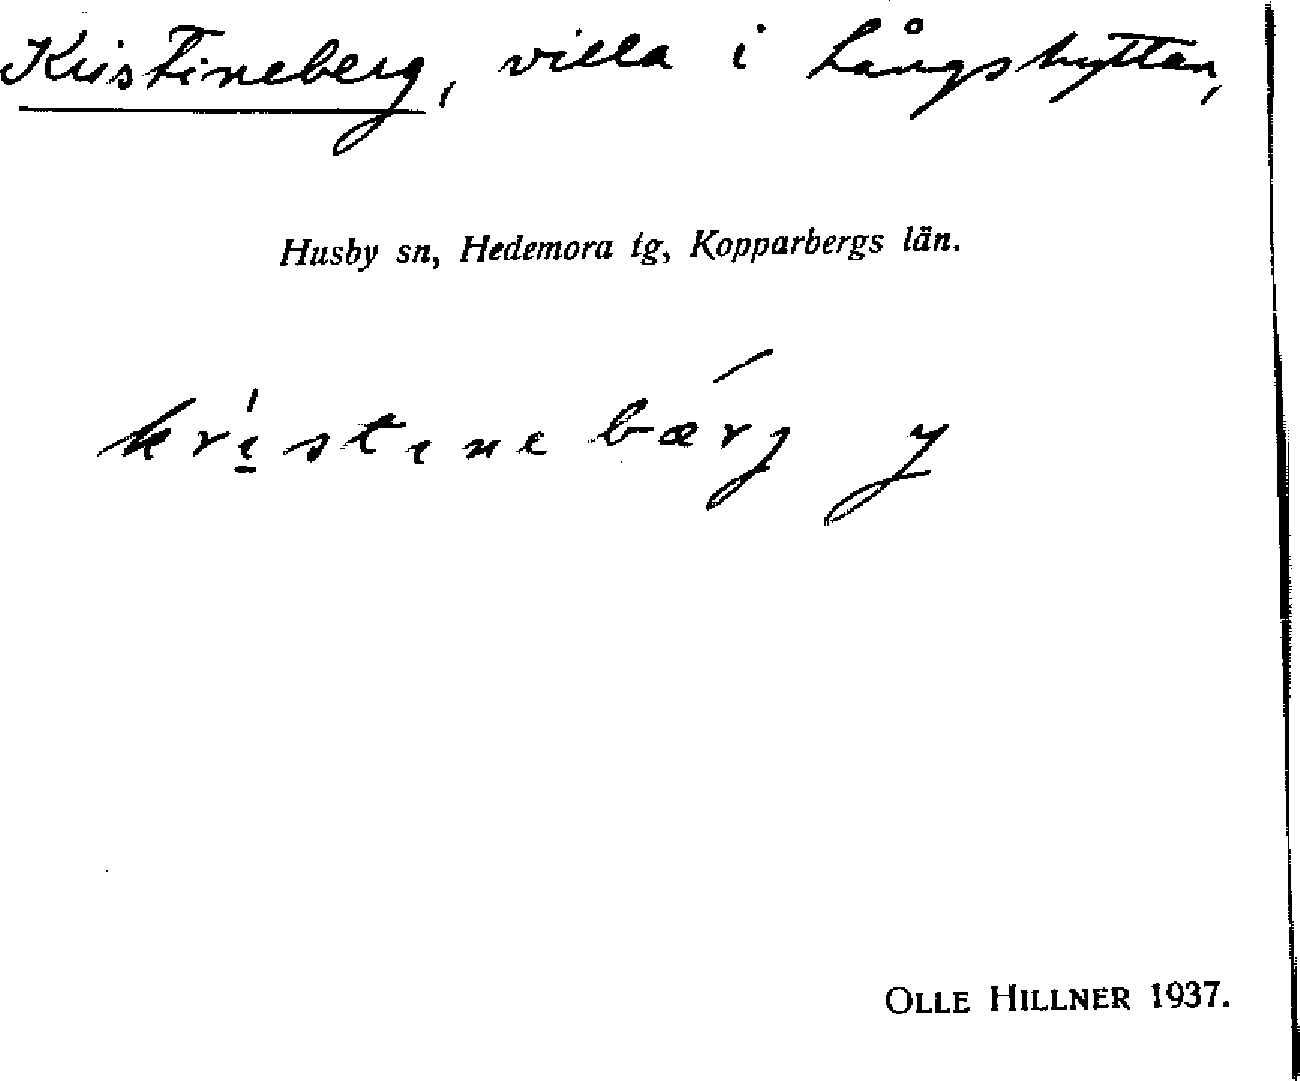 Kristineberg, villa i Långshyttan,
Husby sn, Hedemora tg, Kopparbergs län.
kristinebærg y
OLLE HILLNER 1937.